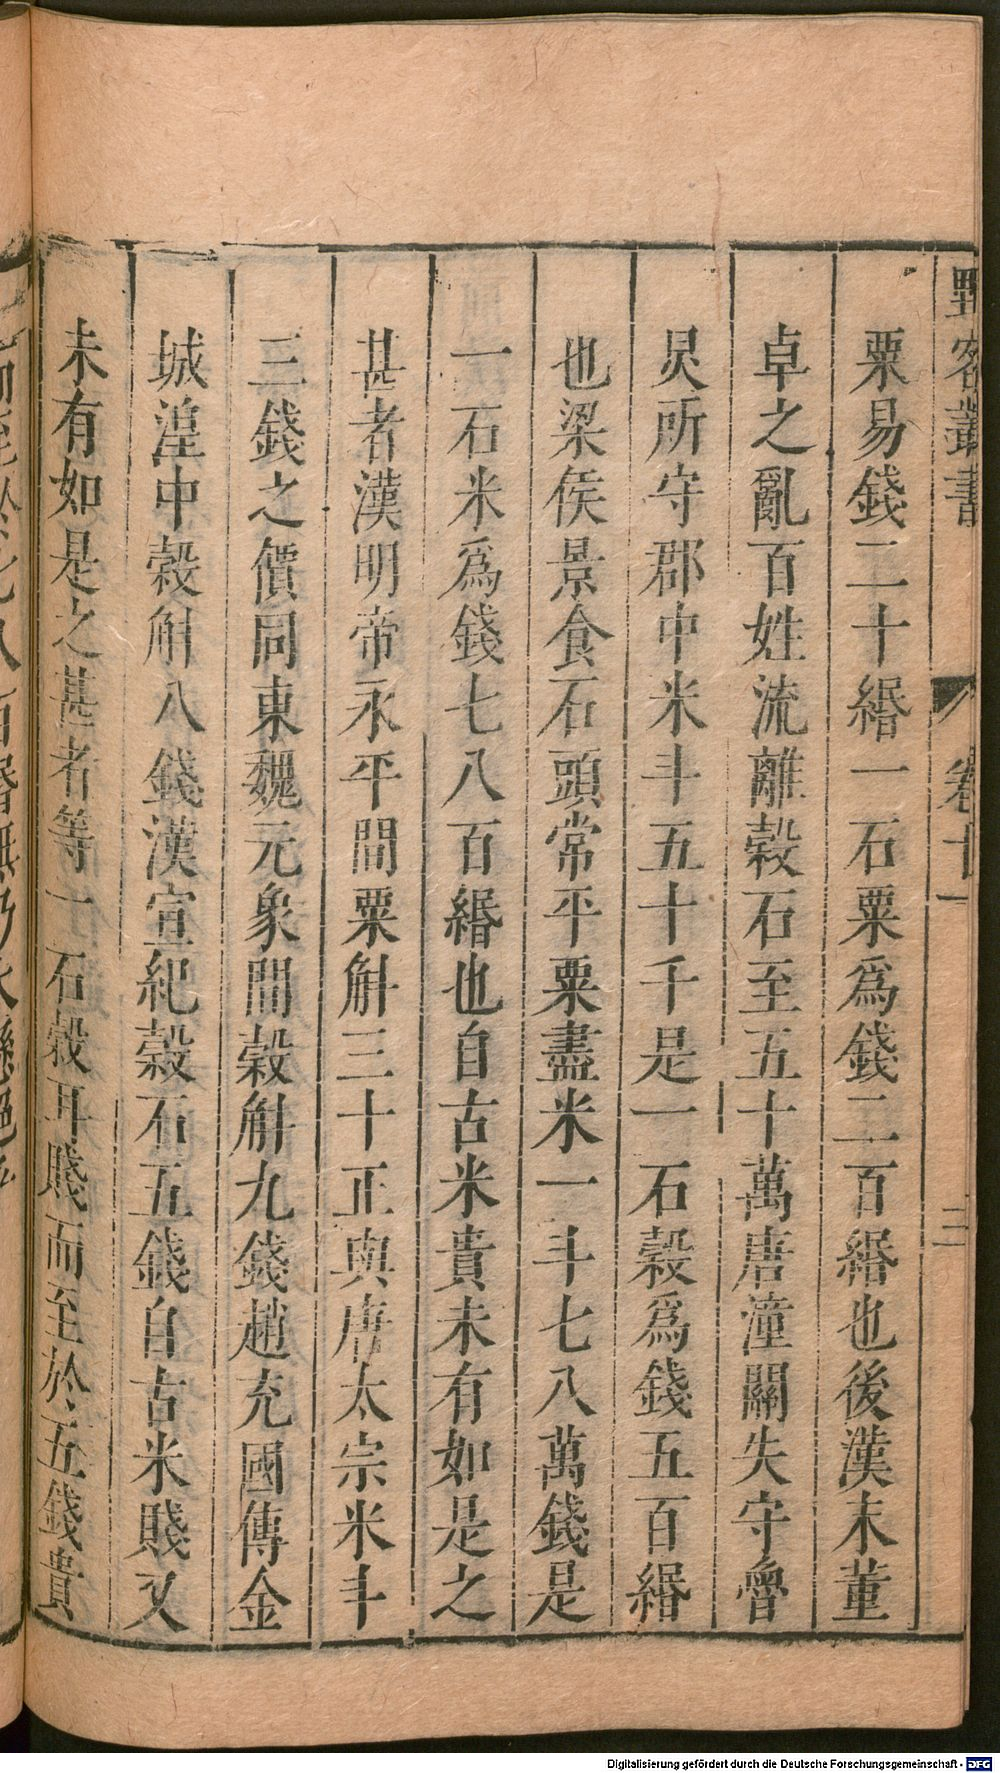 野客叢書 卷十一 二
粟易錢二十緡一石粟爲錢二百緡也後漢末董
卓之亂百姓流離穀石至五十萬唐潼關失守魯
炅所守郡中米斗五十千是一石穀爲錢五百緡
也梁侯景食石頭常平粟盡米一斗七八萬錢是
一石米爲錢七八百緡也自古米貴未有如是之
甚者漢明帝永平間粟斛三十正與唐太宗米斗
三錢之價同東魏元象間穀斛九錢趙充國傳金
城湟中穀斛八錢漢宣紀穀石五錢自古米賤又
未有如是之甚者等一石穀耳賤而至於五錢貴
Digitalisierung gefördert durch die Deutsche Forschungsgemeinschaft - DFG